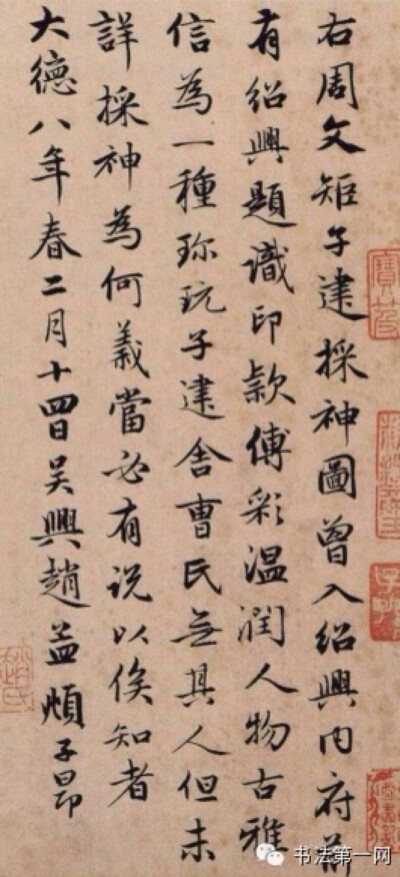 右周文矩子建採神圖曾入紹興內府前
有紹興題識印款傅彩温潤人物古雅
信為一種珎玩子建舍曹氏無其人但未
詳採神為何義當必有説以俟知者
大德八年春二月十四日吴興趙孟頫子昂
趙氏
书法第一网